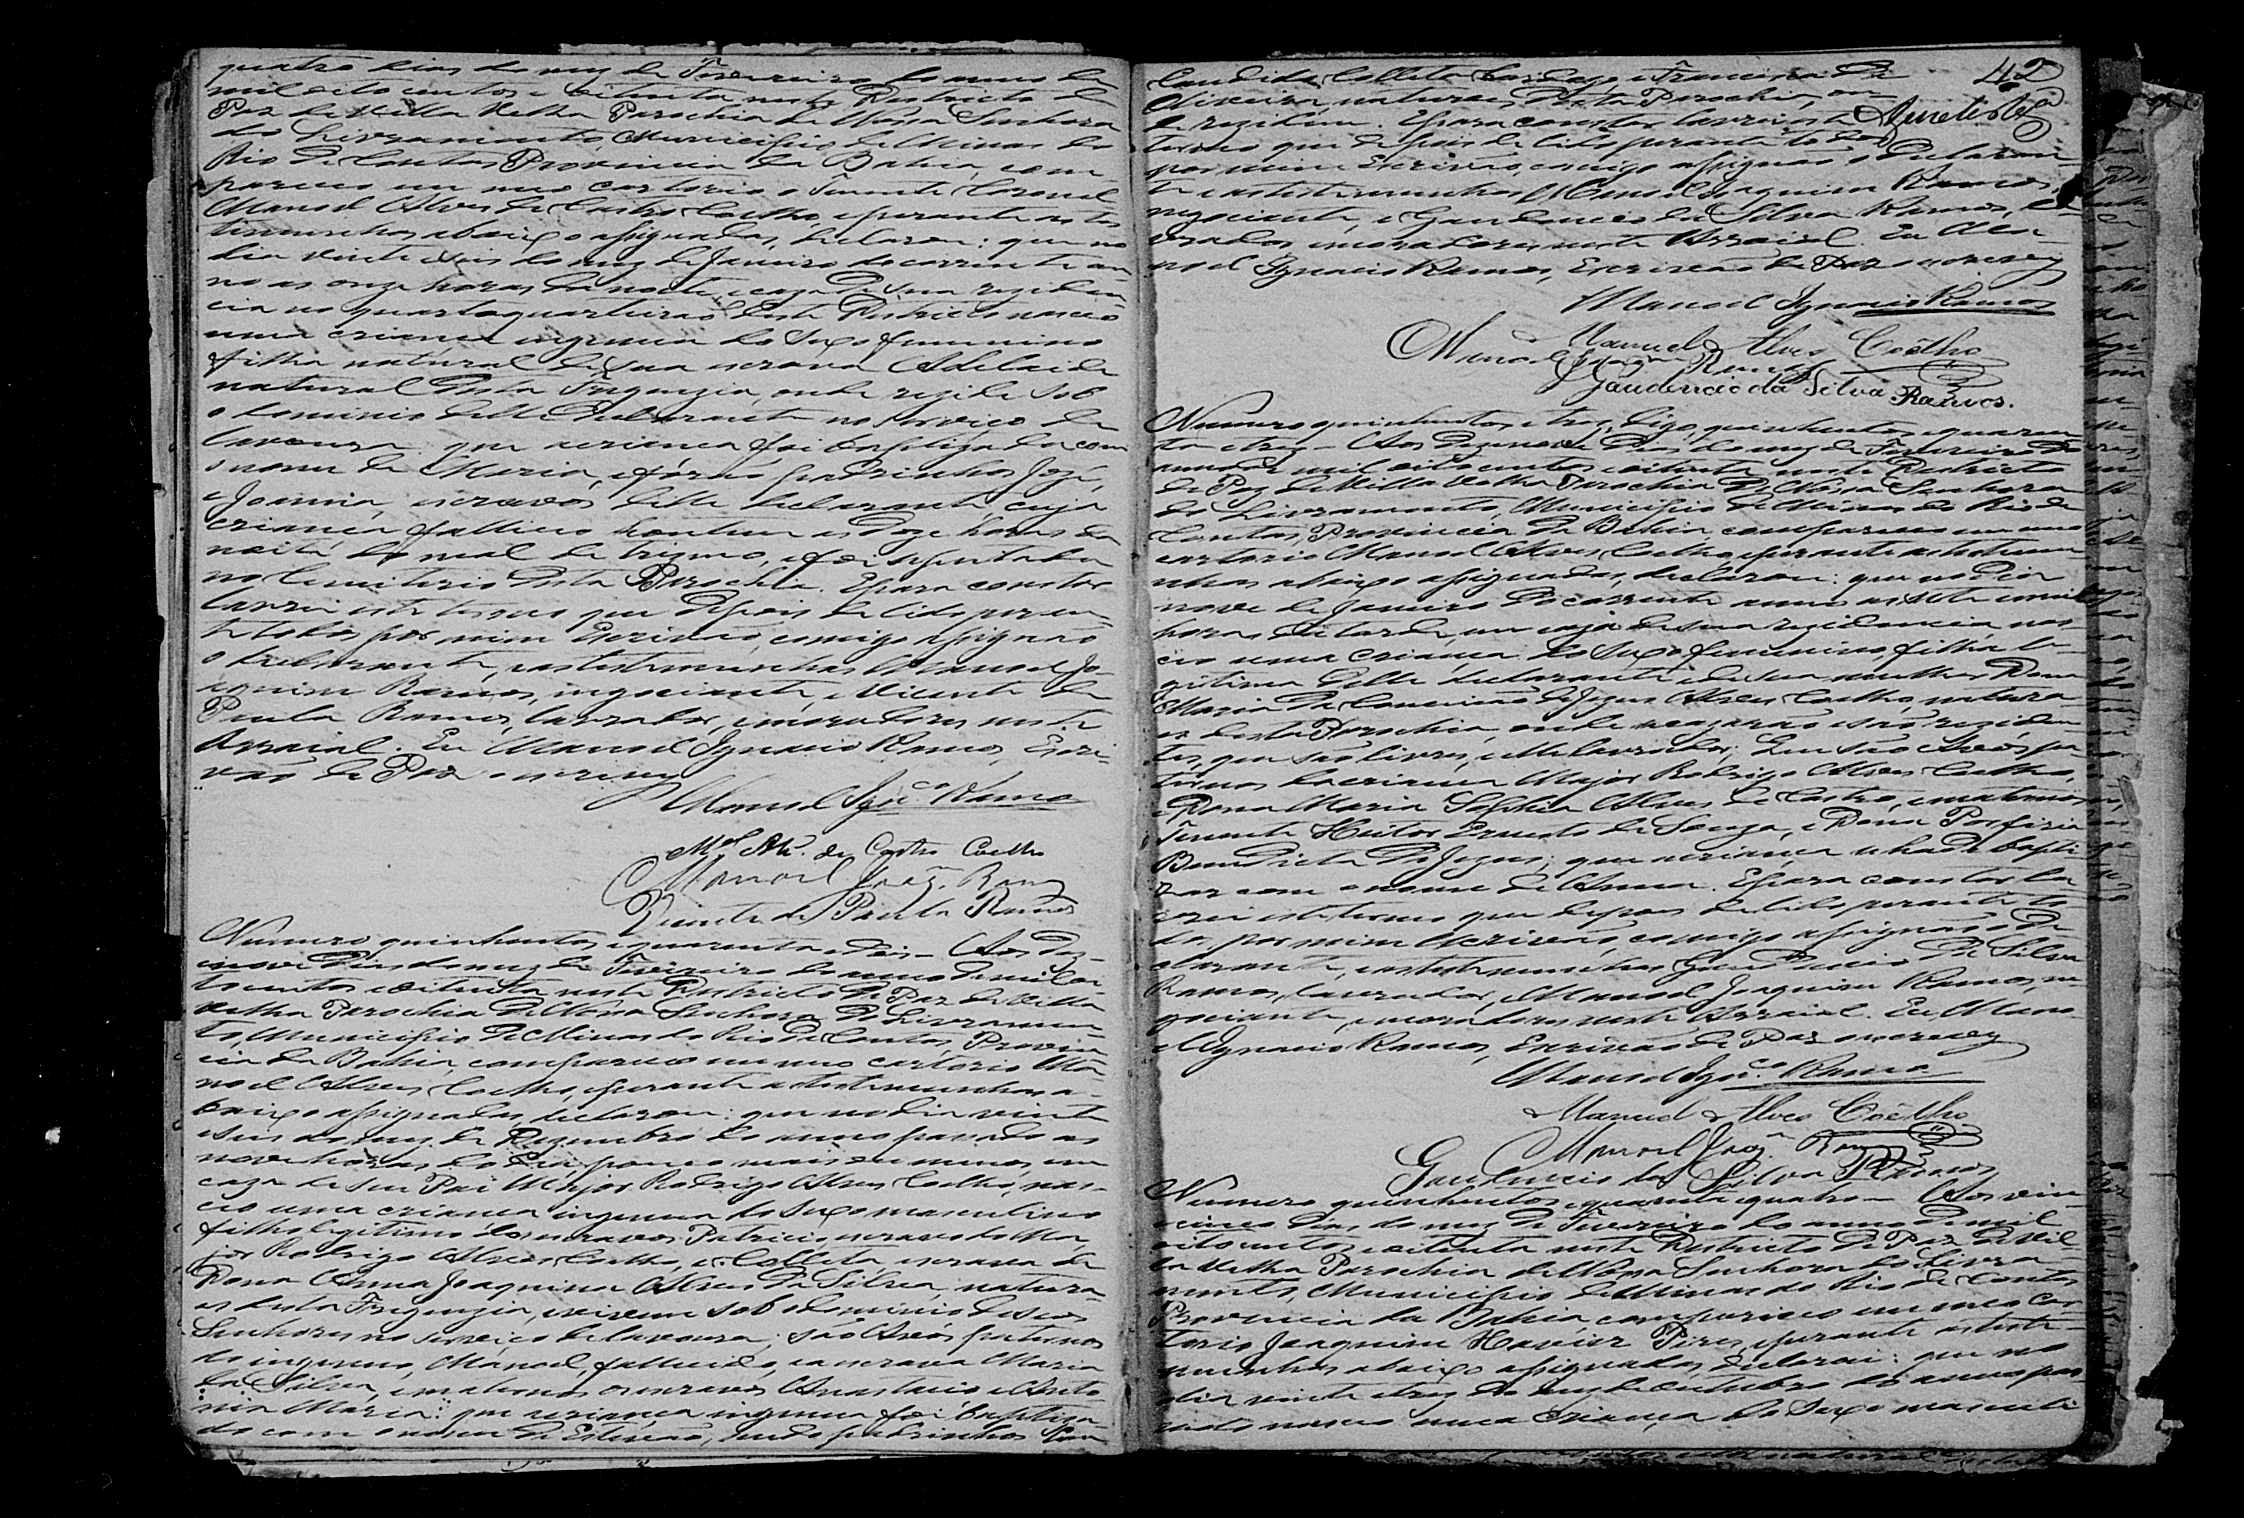 quatro dias do mez de Fevereiro do anno de
mil oito centos e oitenta neste Districto de
Paz de Villa Velha Parochia de Nossa Senhora
do Livramento, Municipio de Minas do
Rio de Contas Provincia da Bahia, com-
pareceu em meu cartorio o Tenente Coronel
Manoel Alves de Castro Coelho, e perante as tes
temunhas abaixo assignadas, declarou: que no
dia vinte e seis do mez de Janeiro do corrente an
no as onze horas da noite, e caza de sua reziden
cia no quarto quarteirão deste Districto nasceo
uma criança ingenua do sexo feminino
filha natural de sua escrava Adelaide
natural desta Freguezia, onde rezide sob
o dominio delle declarante no serviço de
lavoura: que a criança foi baptizada com
o nome de Maria, e forão padrinhos José,
e Joanna, escravos delle declarante, cuja
criança falleceo hontem as doze horas da
noite, do mal de , e foi sepultada
no Cemiterio desta Parochia. E para constar
lavrei este termo que depois de lido peran-
te todos por mim Escrivão, comigo assignão
o declarante, e as testemunhas Manoel Jo
aquim Ramos, negociante, e Vicente de
Paula Ramos, lavrador, e moradores neste
Arraial. Eu Manoel Ignacio Ramos, Escri-
vão de Paz o escrevy
Manoel Ign.co Ramos
M.el Alz. de Castro Coelho
Manoel Joaq.m Ramos
Vicente de Paula Ramos
Numero quinhentos e quarenta e dois - Aos dez-
nove dias do mez de Fevereiro do anno de mil oi-
tocentos e oitenta neste Districto de Paz de Villa
Velha Parochia de Nossa Senhora do Livramen-
to, Municipio de Minas do Rio de Contas, Provin
cia da Bahia, compareceo em meu cartorio Ma-
noel Alves Coelho, e perante as testemunhas a-
baixo assignadas, declarou: que no dia vinte
e seis do mez de Dezembro do anno passado as
nove horas do dia pouco mais ou menos, em
caza de seu Pai Major Rodrigo Alves Coelho, nas-
ceo uma criança ingenua do sexo masculino
filho legitimo dos escravos Patricio escravo do Ma-
jor Rodrigo Alves Coelho, e Colleta, escrava de
Dona Anna Joaquina Alves da Silva, natura-
es desta Freguezia, e vivem sob o dominio de seos
Senhores no serviço de lavoura; são Avós paternos
do ingenuo, Manoel, fallecido, e a escrava Maria
da Silva, e maternos os escravos Anastacio e Anto
nia Maria: que a criança ingenua foi baptiza
do com o nome de Estevão, sendo padrinhos
Candido Colleta Cardozo, e Francisca de
Oliveira, naturaes desta Parochia, on
de rezidem. E para constar lavrei este
termo que depois de lido perante todos
por mim Escrivão, comigo assignão o declaran
te e as testemunhas Manoel Joaquim Ramos,
negociante, e Gaudencio da Silva Ramos, la-
vrador, e moradores neste Arraial. Eu Ma-
noel Ignacio Ramos, Escrivão de Paz o escrevy
42
Manoel Ignacio Ramos
Manuel Alves Coêlho
Manoel Joaq.m Ramos
Gaudencio da Silva Ramos.
Numero quinhentos e tres, digo, quinhentos e quaren
ta e tres - Aos dezenove dias do mez de Fevereiro do
anno de mil oito centos e oitenta neste Districto
de Paz de Villa Velha Parochia de Nossa Senhora
do Livramento, Municipio de Minas do Rio de
Contas, Provincia da Bahia, compareceo em meu
cartorio Manoel Alves Coelho, e perante as testemu
nhas abaixo assignadas, declarou: que no dia
nove de Janeiro do corrente anno as sete e meia
horas da tarde, em caza de sua rezidencia, nas
ceo uma criança do sexo feminino, filha le-
gitima delle declarante e de sua mulher Dona
Maria da Conceição de Jezus Alves Coelho, natura-
es desta Parochia, onde se cazarão e são reziden
tes, que são livres, e elle lavrador; que são Avós pa
ternos da criança Major Rodrigo Alves Coelho,
e Dona Maria Sophia Alves de Castro, e maternos
Tenente Heitor Ernesto de Souza, e Dona Porfiria
Benedicta de Jezus; que a criança se hade bapti
zar com o nome de Anna. E para constar la
vrei este termo que depois de lido perante to
dos por mim Escrivão, comigo assignão o de
clarante, e as testemunhas Gaudencio da Silva
Ramos, lavrador, e Manoel Joaquim Ramos, ne
gociante, e moradores neste Arraial. Eu Mano-
el Ignacio Ramos, Escrivão de Paz o escrevy
Manoel Ign.co Ramos
Manuel Alves Coêlho
Manoel Joaq.m Ramos
Gaudencio da Silva Ramos
Numero quinhentos e quarenta e quatro - Aos vin
e cinco dias do mez de Fevereiro do anno de mil
oito centos e oitenta neste Districto de Paz de Vil-
la Velha Parochia de Nossa Senhora do Livra-
mento, Municipio de Minas do Rio de Contas
Provincia da Bahia, compareceo em meu car
torio Joaquim Xavier Pires, e perante as teste-
munhas abaixo assignadas, declarou: que no
dia vinte e tres do mez de Outubro do anno pas
sado nasceo uma criança do sexo masculi